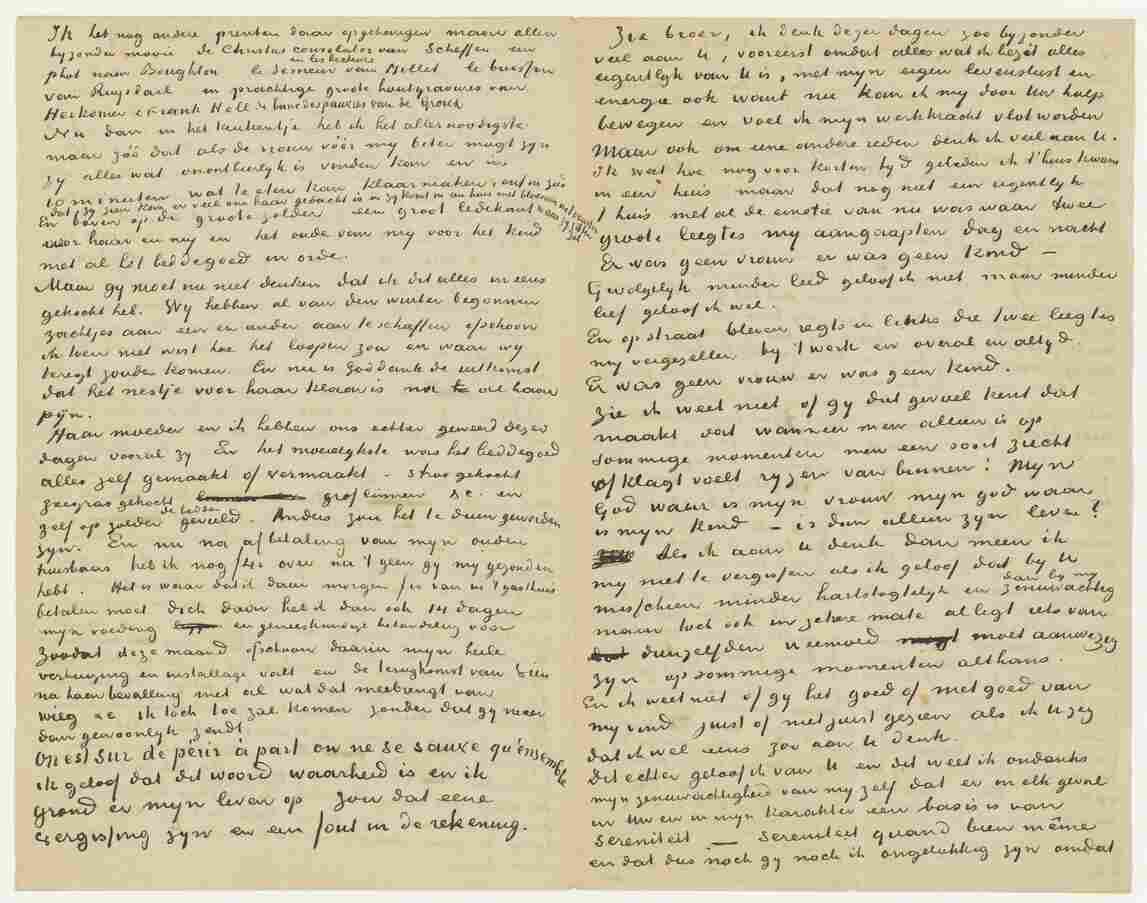 Ik heb nog andere prenten daar opgehangen maar allen
byzonder mooi de Christus consolator van Scheffer een
en les bêcheurs
phot naar Boughton le semeur van Millet le buisson
van Ruysdael en prachtige groote houtgravures van
Herkomer & Frank Holl & le banc des pauvres van de Groux
Nu dan in het keukentje heb ik het allernoodigste
maar zóó dat als de vrouw vóór my beter mogt zyn
zy alles wat onontbeerlyk is vinden kan en in
10 minuten wat te eten kan klaarmaken, enfin zóó
dat zy zien kan er veel om haar gedacht is als zy komt in een huis met bloemen voor het venster
waar zy zitten zal
En boven op de groote zolder een groot ledekant
voor haar en my en het oude van my voor het kind
met al het beddegoed in orde.
Maar gy moet nu niet denken dat ik dit alles in eens
gekocht heb. Wy hebben al van den winter begonnen
zachtjes aan een en ander aan te schaffen ofschoon
ik toen niet wist hoe het loopen zou en waar wy
teregt zouden komen. En nu is goddank de uitkomst
dat het nestje voor haar klaar is na al haar
pyn.
Haar moeder en ik hebben ons echter geweerd dezer
dagen vooral zy En het moeielykste was het beddegoed
alles zelf gemaakt of vermaakt – stroo gekocht
zeegras gekocht grof linnen &c. en
de bedden
zelf op zolder gevuld. Anders zou het te duur geworden
zyn. En nu na afbetaling van myn ouden
huisbaas heb ik nog over na 't geen gy my gezonden
hebt. Het is waar dat ik daar morgen van in 't gasthuis
betalen moet doch daar heb ik dan ook 14 dagen
myn voeding en geneeskundige behandeling voor
Zoodat deze maand ofschoon daarin myn heele
verhuizing en installage valt en de terugkomst van Sien
na haar bevalling met al wat dat meebrengt van
wieg &c ik toch toe zal komen zonder dat gy meer
dan gewoonlyk zendt.
On est sur de perir à part on ne se sauve qu'ensemble
ik geloof dat dit woord waarheid is en ik
grond er myn leven op zou dat eene
vergissing zyn en een fout in de rekening.
Zie broer, ik denk dezer dagen zoo byzonder
veel aan U, vooreerst omdat alles wat ik bezit alles
eigentlyk van U is, met myn eigen levenslust en
energie ook want nu kan ik my door Uw hulp
bewegen en voel ik myn werkkracht vlot worden
Maar ook om eene andere reden denk ik veel aan U.
Ik weet hoe nog voor korten tyd geleden ik t'huis kwam
in een huis maar dat nog niet een eigentlyk
t'huis met al de emotie van nu was waar twee
groote leegtes my aangaapten dag en nacht
Er was geen vrouw er was geen kind –
Gevolgelyk minder leed geloof ik niet maar minder
lief geloof ik wel.
En op straat bleven regts en links die twee leegtes
my vergezellen by 't werk en overal en altyd.
Er was geen vrouw er was geen kind.
Zie ik weet niet of gy dat gevoel kent dat
maakt dat wanneer men alleen is op
sommige momenten men een soort zucht
of klagt voelt ryzen van binnen: Myn
God waar is myn vrouw myn god waar
is myn kind – is dan alleen zyn leven?
Als ik aan U denk dan meen ik
my niet te vergissen als ik geloof dat by U
misschien minder hartstogtelyk en zenuwachtig
dan by my
maar toch ook in zekere mate al ligt iets van
dienzelfden weemoed moet aanwezig
zyn op sommige momenten althans.
En ik weet niet of gy het goed of niet goed van
my vind juist of niet juist gezien als ik U zeg
dat ik wel eens zoo aan U denk.
Dit echter geloof ik van U en dit weet ik ondanks
myn zenuwachtigheid van my zelf dat er in elk geval
in Uw en in myn karakter een basis is van
sereniteit — sereniteit quand bien même
en dat dus noch gy noch ik ongelukkig zyn omdat